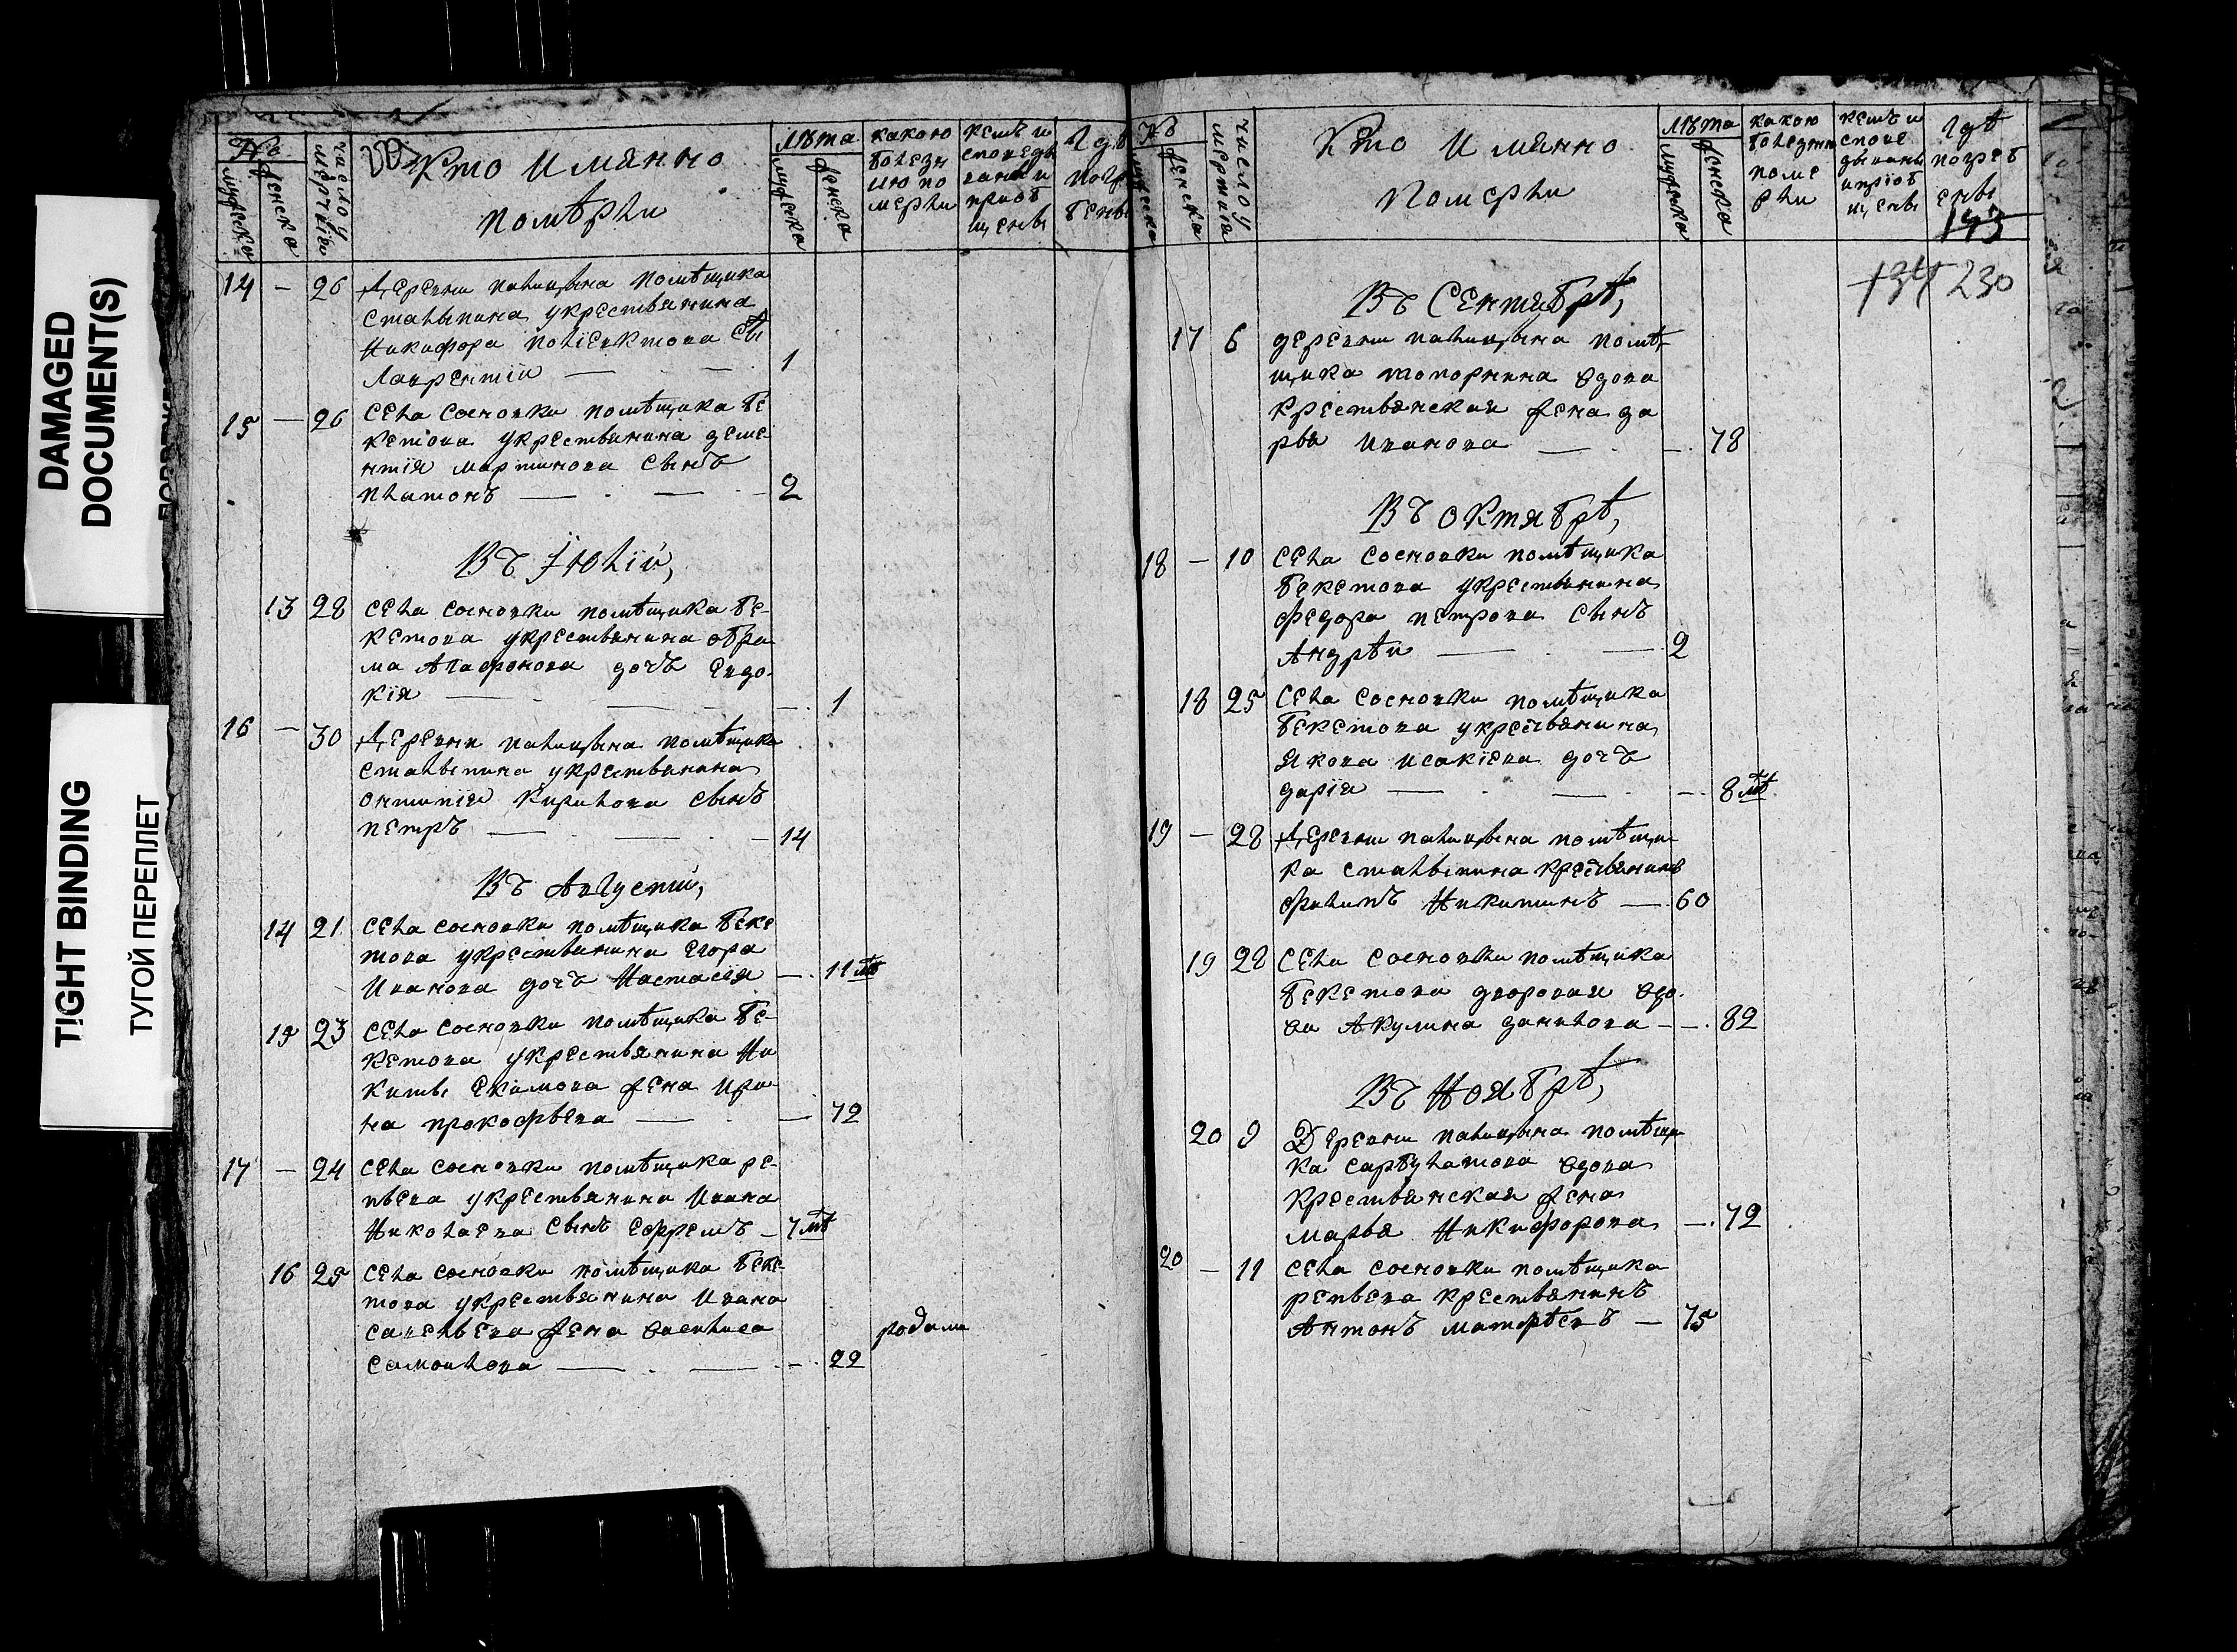 DAMAGED
DOCUMENT(S)
TIGHT BINDING
ТУГОЙ ПЕРЕПЛЕТ
№
мужеска
женска
число у
мертвія
Кто Имянно
помѣрли
лѣта
мужеска
женска
какою
болезн
ию по
мерли
кемъ и
споведы
ваны и
приоб
щены
гдѣ
погр
бены
14 — 26 Деревни палицына помѣщика
сталыпина у крестьянина
Никифора полiевктова сн
Лаврентiи — 1
15 — 26 села сосновки помѣщика бе
кетова у крестьянина деме
нтiя мартинова сынъ
платонъ — 2
Въ Їюлiи,
13 28 села сосновки помѣщика бе-
кетова у крестьянина обра
ма Агафонова дочь Евдо-
кiя — 1
16 — 30 Деревни палицына помѣщика
сталыпина у крестьянина
онтипiя Кирилова сынъ
петръ — 14
Въ Августи,
14 21 села сосновки помѣщика беке
това у крестьянина Егора
Иванова дочь Настасiя — 11 лѣ
15 23 села сосновки помѣщика бе-
кетова у крестьянина Ни
киты Екимова жена Ири-
на прокофьева — 72
17 — 24 села сосновки помѣщика ре-
пьева у крестьянина Ивана
Николаева сынъ Ефремъ — 7 лѣ
16 25 села сосновки помѣщика беке-
това у крестьянина Ивана
савельева жена василиса
самоилова — 22
родами
№
мужеска
женска
число у
мертвія
Кто Имянно
Померли
лѣта
мужеска
женска
какою
болезнию
поме
рли
кемъ и
спове
дываны
и прiоб
щены
гдѣ
погреб
ены
143
134 230
Въ Сентябрѣ,
17 6 деревни палицына помѣ-
щика топорнина вдова
крестьянская жена да
рья Иванова — 78
Въ октябрѣ,
18 — 10 села сосновки помѣщика
бекетова у крестьянина
федора петрова сынъ
Андрѣи — 2
18 25 села сосновки помѣщика
бекетова у крестьянина
Якова исакiева дочь
дарiя — 8 лѣ
19 — 28 Деревни палицына помѣщи-
ка сталыпина крестьянинъ
филипъ Никитинъ — 60
19 28 села сосновки помѣщика
бекетова дворовая вдо-
ва Акулина данилова — 82
Въ Ноябрѣ,
20 9 Деревни палицына помѣщи
ка сарбулатова вдова
крестьянская жена
марья Никифорова — 72
20 — 11 села сосновки помѣщика
репьева крестьянинъ
Антонъ матфѣевъ — 75